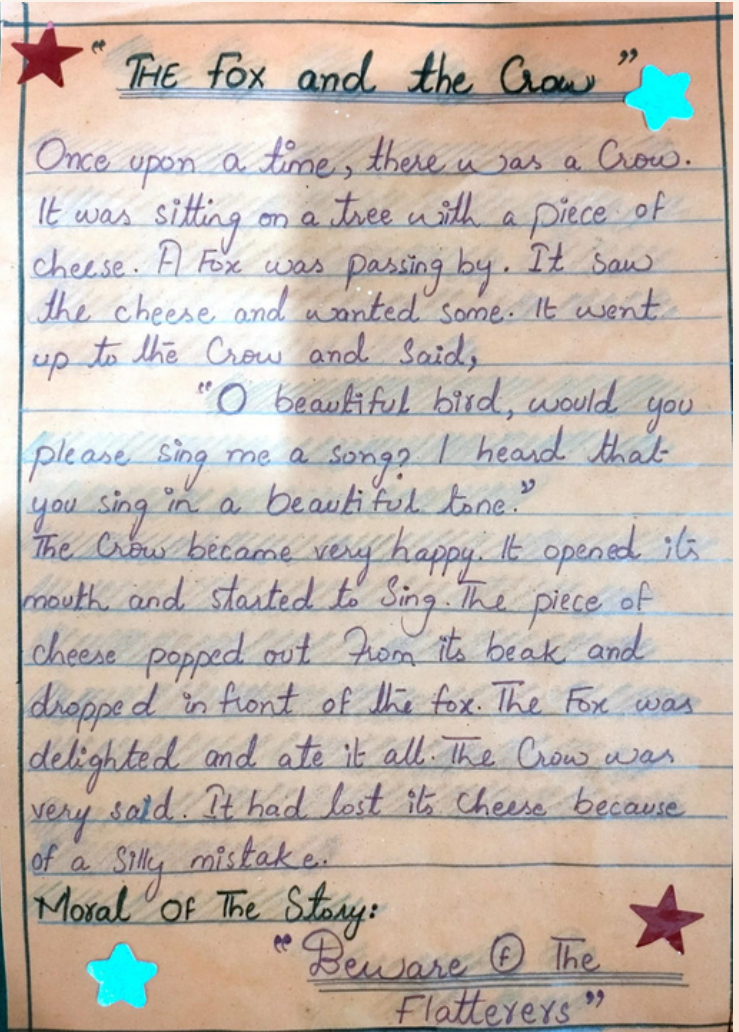 "THE Fox and the Crow"
Once upon a time, there was a Crow.
It was sitting on a tree with a piece of
cheese. A Fox was passing by. It saw
the cheese and wanted some. It went
up to the Crow and Said,
"O beautiful bird, would you
please sing me a song? I heard that
you sing in a beautiful tone."
The Crow became very happy. It opened its
mouth and started to Sing. The piece of
cheese popped out From its beak and
dropped in front of the fox. The Fox was
delighted and ate it all. The Crow was
very said. It had lost its Cheese because
of a Silly mistake.
Moral OF The Story:
"Beware Of The
Flatterers"